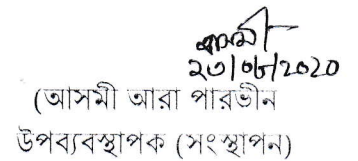 আসমী
২৩/০৮/২০২০
(আসমী আরা পারভীন
উপব্যবস্থাপক (সংস্থাপন)